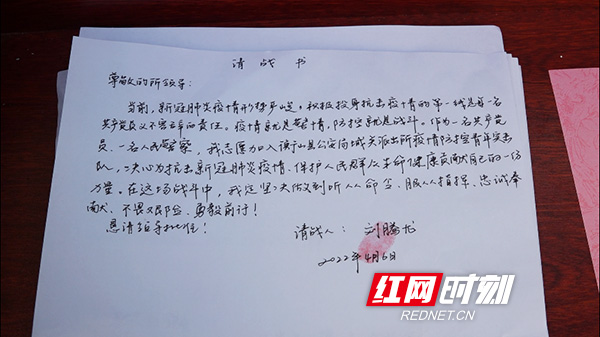 请战书
尊敬的所领导:
当前,新冠肺炎疫情形势严峻,积极投身抗击疫情的第一线是每一名
共产党员义不容辞的责任。疫情就是警情,防控就是战斗。作为一名共产党
员、一名人民警察,我志愿加入汝城县公安局城关派出所疫情防控青年突击
队,决心为抗击新冠肺炎疫情、保护人民群众生命健康贡献自己的一份
力量。在这场战斗中,我定坚决做到听从命令、服从指挥、忠诚奉
献、不畏艰险、勇毅前行!
恳请组织批准!
请战人:刘腾龙
2022年4月6日
红网时刻
REDNET.CN